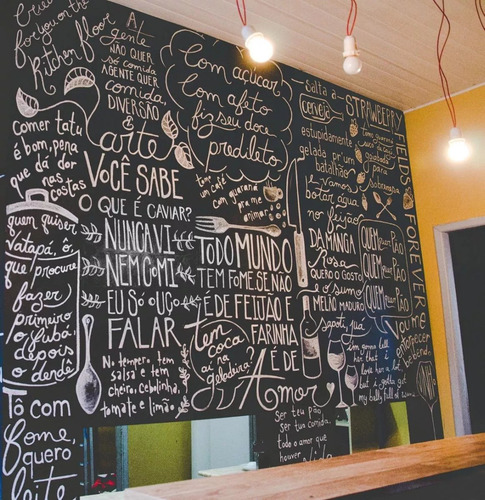 for you on the
kitchen floor
A
gente
NÃO QUER
só comida
A GENTE QUER
comida,
DIVERSÃO
&
arte
Comer tatu
é bom, pena
que dá dor
nas
costas
VOCÊ SABE
O QUE É CAVIAR?
NUNCA VI
NEM COMI
EU SÓ OUÇO
FALAR
quem quiser
Vatapá, ô,
que procure
fazer
primeiro
o fubá,
depois
o dendê
No tempero tem
salsa e tem
cheiro, cebolinha,
tomate e limão
Tô com
fome,
quero
leite
Com açúcar,
Com afeto
fiz seu doce
predileto
um café
com guaraná
pra me
animar
TODO MUNDO
TEM FOME, SE NÃO
É DE FEIJÃO E
FARINHA
É DE
Amor
tem
coca
aí na
geladeira?
ser teu pão
ser tua comida
todo o amor que
houver
Salta a
cerveja
estupidamente
gelada pr'um
batalhão
E vamos
botar água
no feijão
STRAWBERRY
FIELDS
FOREVER
DA MANGA
Rosa
QUERO O GOSTO
E O SUMO
MELÃO MADURO
Sapoti, juá
QUEM PÃO
QUEM PÃO
QUEM PÃO